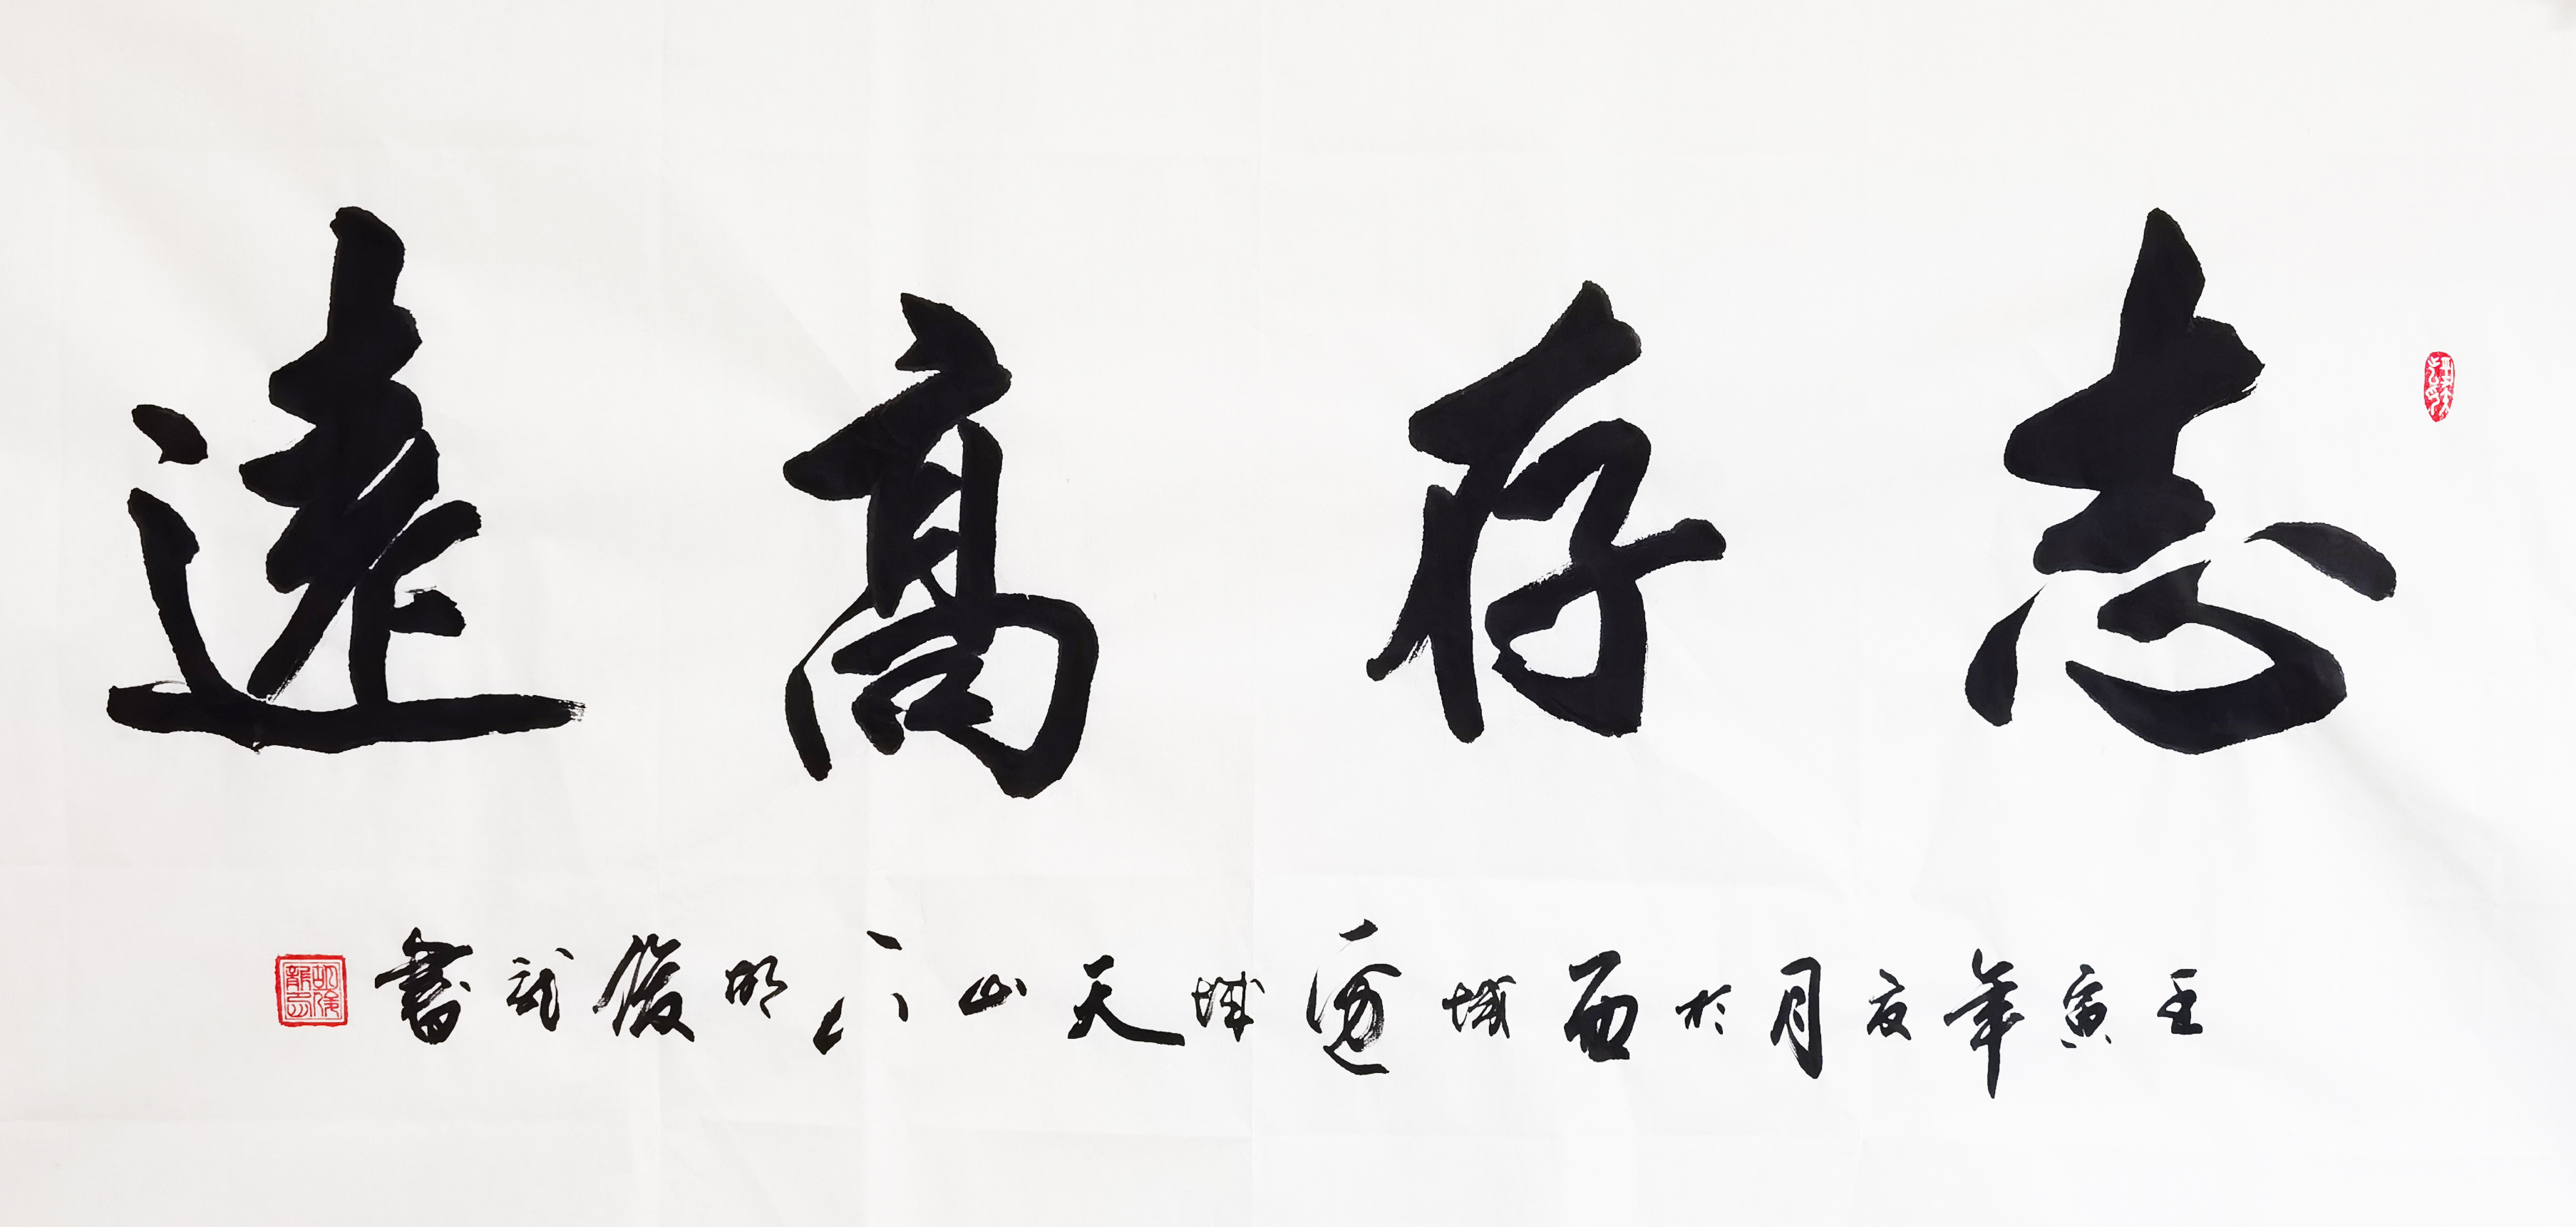 志存高遠
壬寅年夏月於西域邊城天山下胡俊龍書
胡俊龍印